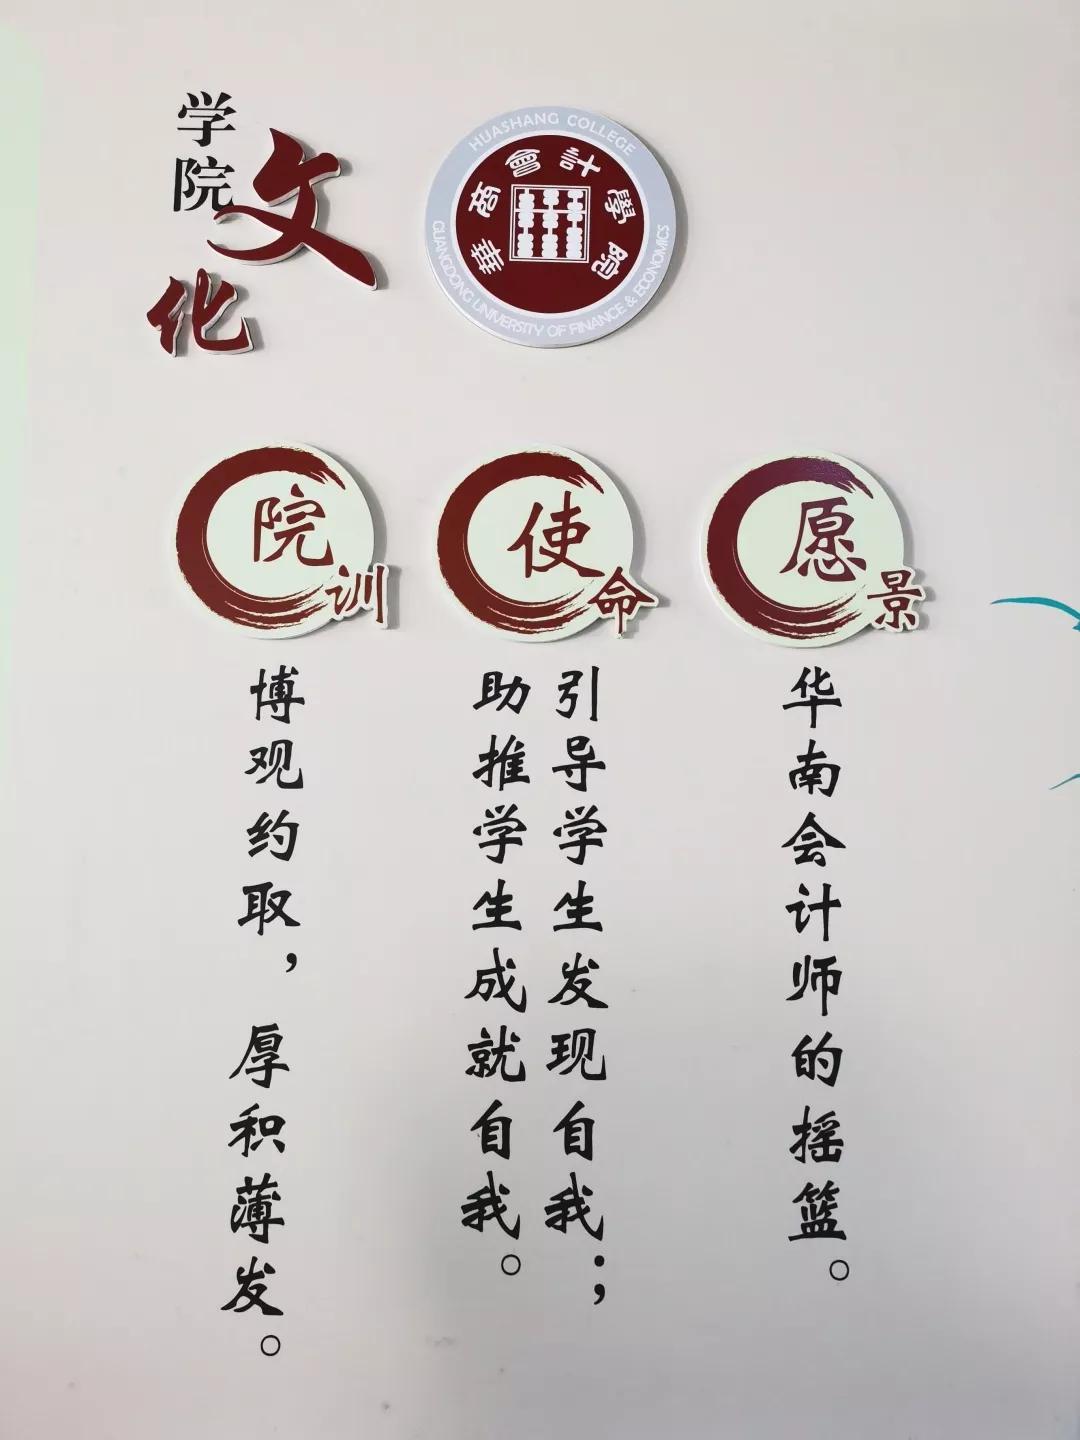 学院
文化
HUASHANG COLLEGE
華商會計學院
GUANGDONG UNIVERSITY OF FINANCE & ECONOMICS
院训
博观约取，厚积薄发。
使命
引导学生发现自我；
助推学生成就自我。
愿景
华南会计师的摇篮。